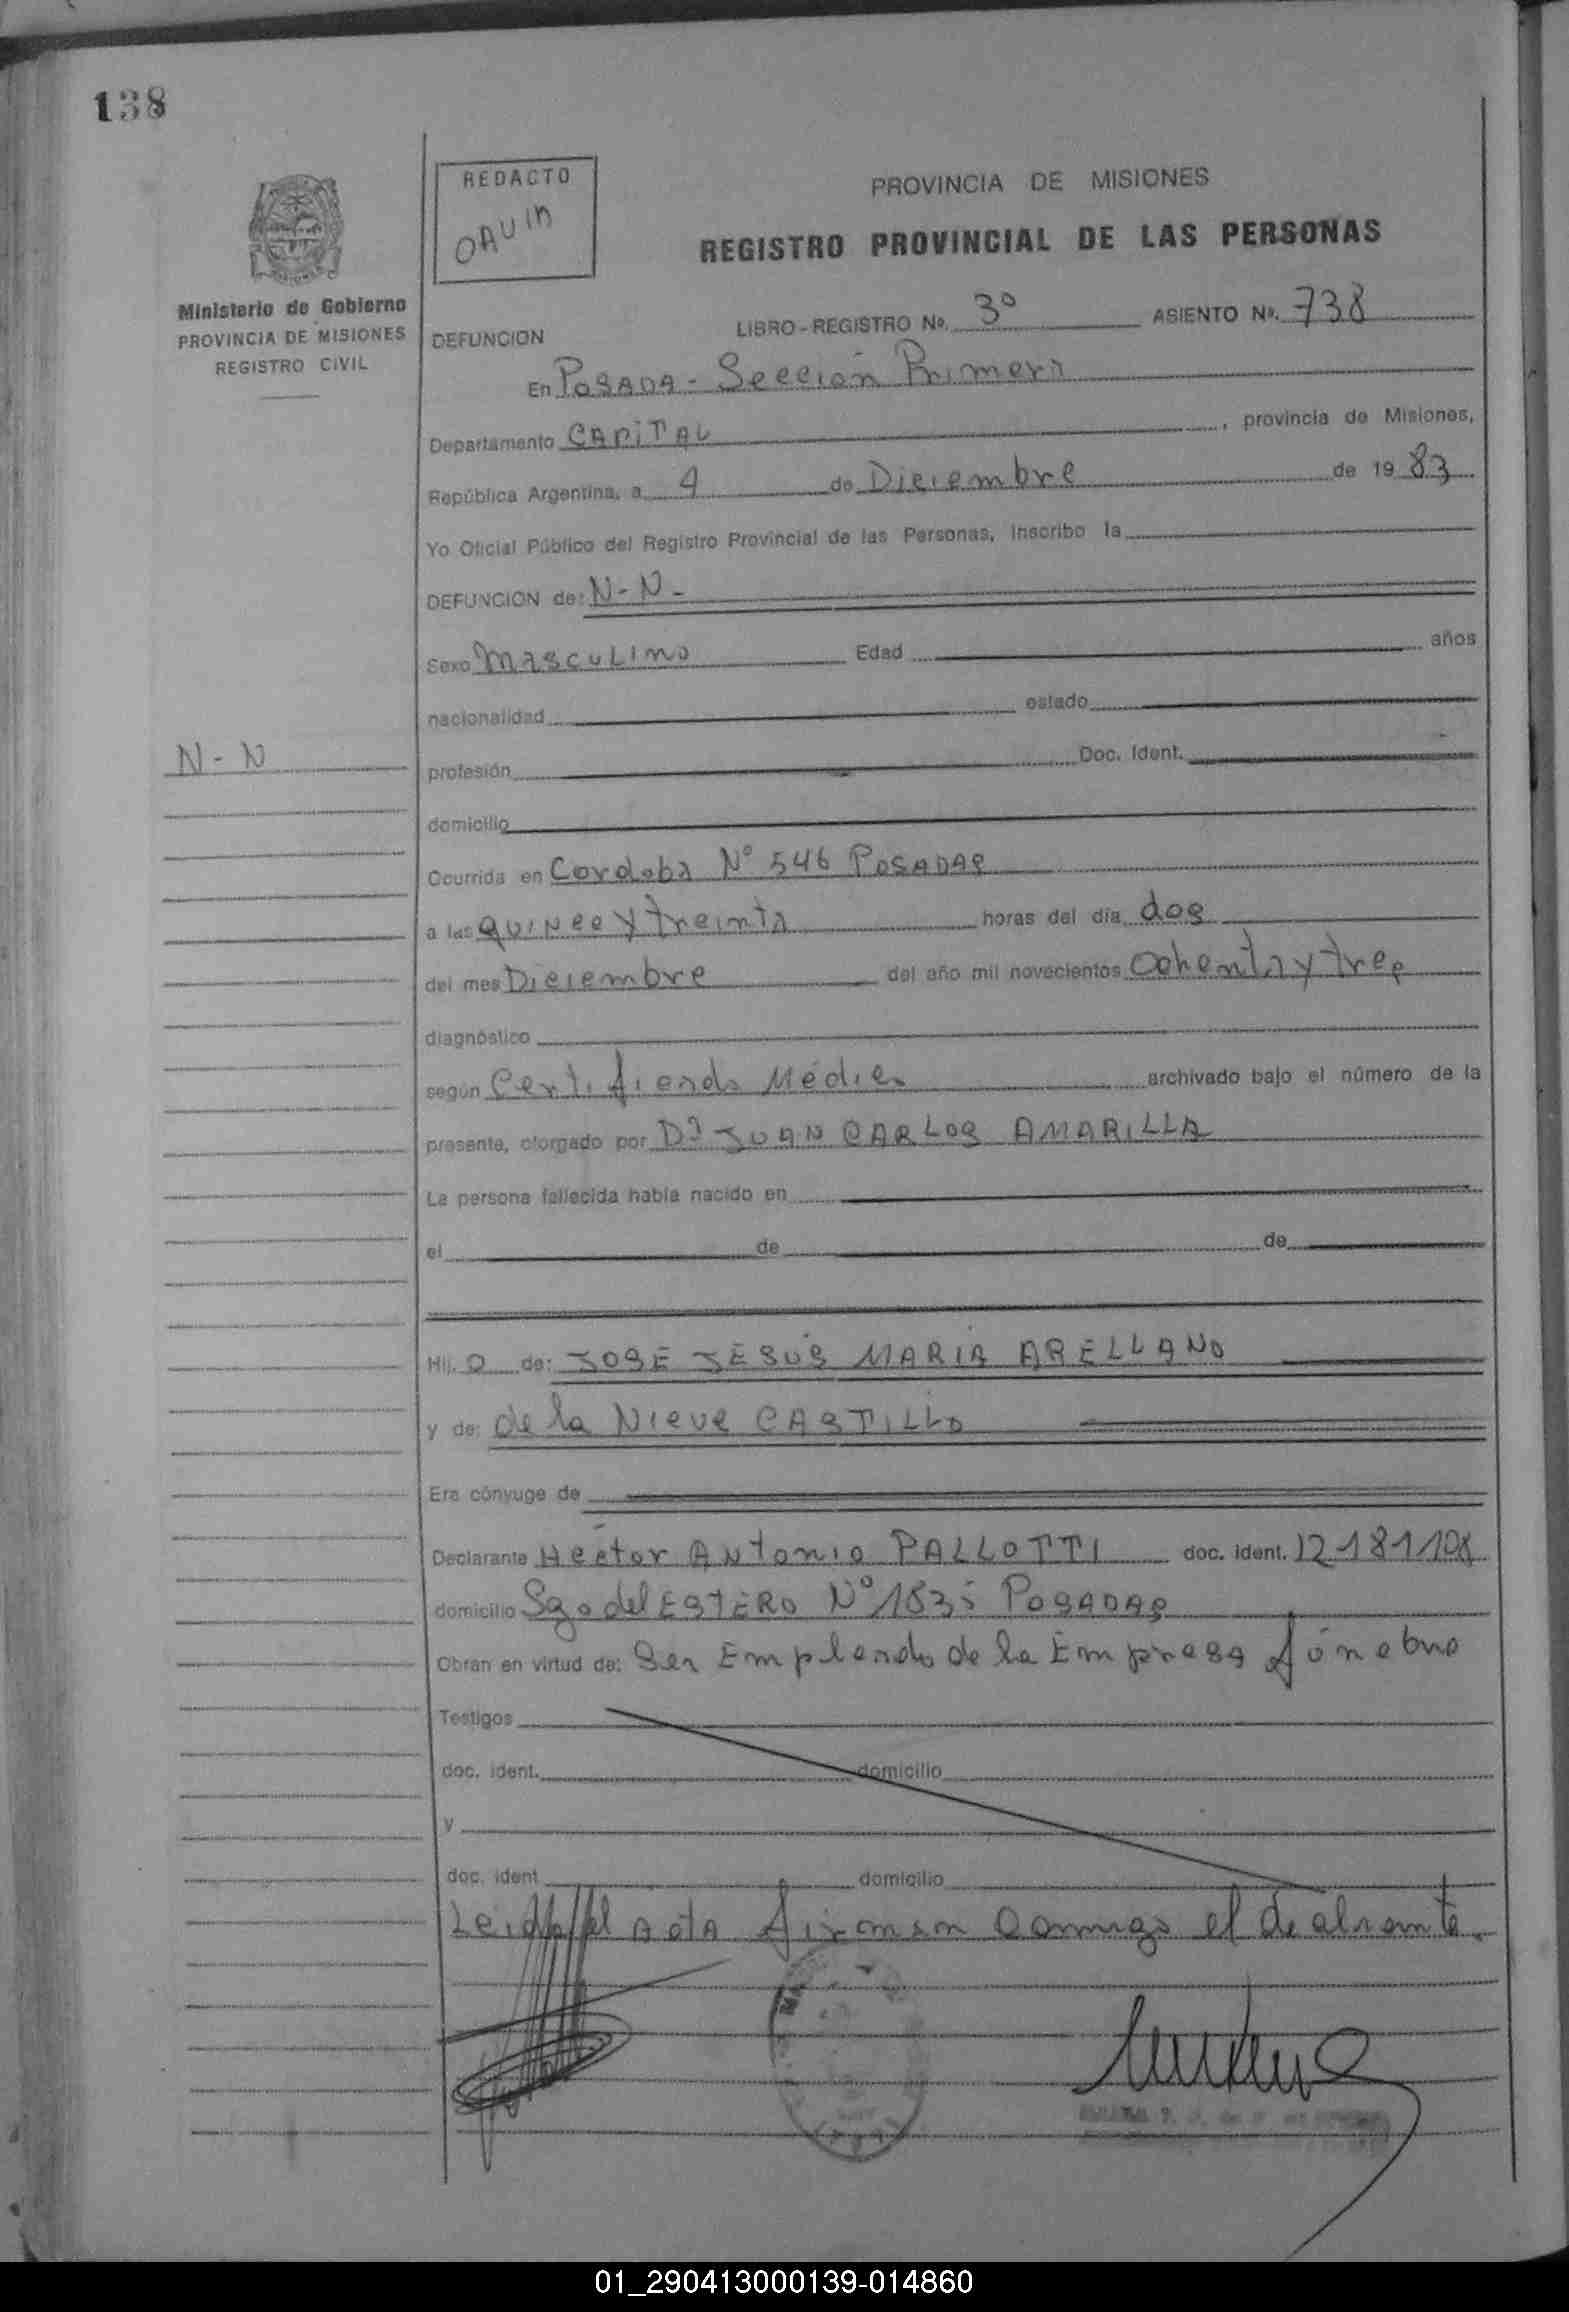 138
REDACTO
OAUIN
PROVINCIA DE MISIONES
REGISTRO PROVINCIAL DE LAS PERSONAS
Ministerio de Gobierno
PROVINCIA DE MISIONES
REGISTRO CIVIL
DEFUNCION LIBRO-REGISTRO Nº. 3º ASIENTO Nº. 738
En POSADA - Sección Primera
Departamento CAPITAL, provincia de Misiones,
República Argentina, a 4 de Diciembre de 1983
Yo Oficial Público del Registro Provincial de las Personas, inscribo la
DEFUNCION de: N-N-
Sexo MASCULINO Edad años
nacionalidad estado
N-N
profesión Doc. Ident.
domicilio
Ocurrida en Cordoba Nº 546 POSADAS
a las quince y treinta horas del día dos
del mes Diciembre del año mil novecientos Ochenta y tres
diagnóstico
según Certificado Médico archivado bajo el número de la
presente, otorgado por Dr JUAN CARLOS AMARILLA
La persona fallecida había nacido en
el de de
Hij o de: JOSÉ JESÚS MARIA ARELLANO
y de: de la Nieve CASTILLO
Era cónyuge de
Declarante Héctor Antonio PALLOTTI doc. ident. 12181108
domicilio Sgo del ESTERO Nº 1835 POSADAS
Obran en virtud de: Ser Empleado de la Empresa fúnebre
Testigos
doc. ident. domicilio
y
doc. ident domicilio
Leida el Acta firman conmigo el declarante.
01_290413000139-014860